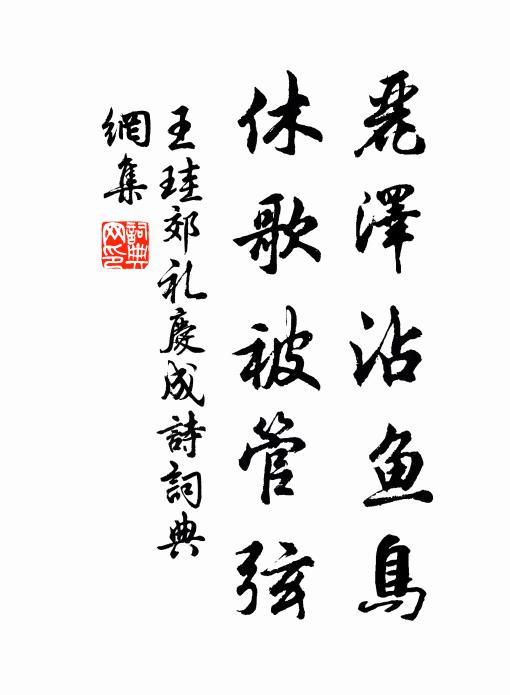 麗澤沾鱼鳥
休歌被管弦
王珪郊礼慶成詩詞典
網集
詞典
网印